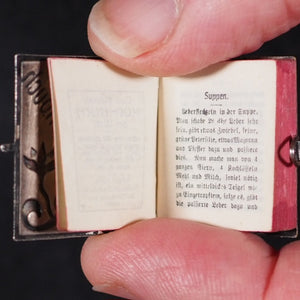 Suppen.
Leberknöpfln in der Suppe.
Man schabe die Leber
fein, gibt etwas Zwiebel, feine,
grüne Petersilie, etwas Majoran
und Pfeffer dazu und passiere
dies. Nun mache man von 4
ganzen Eiern, 4 Kochlöffeln
Mehl und Milch, soviel nötig
ist, ein mitteldickes Teigel wie
zu Eingetropftem, salze es, gibt
die passierte Leber dazu und